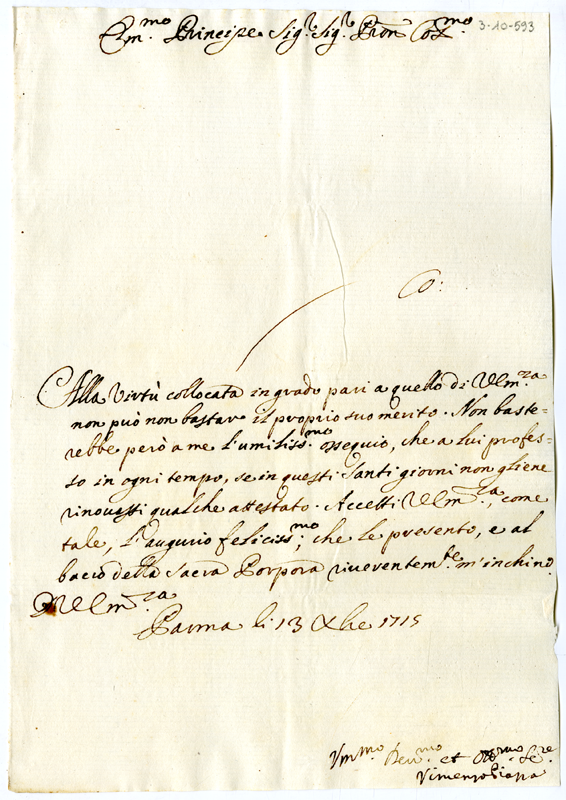 Em.mo Principe Sig.r Sig.r Pron Co:mo
3-10-593
Co:
Alla Virtù collocata in grado pari a quello di VEm.za
non può non bastare il proprio suo merito. Non baste=
rebbe però a me l'umiliss.mo ossequio, che a lui profes=
so in ogni tempo, se in questi Santi giorni non gliene
rinovassi qualche attestato. Accetti VEm.za, come
tale, l'augurio feliciss.mo; che le presento, e al
bacio della Sacra Porpora riverentem.te m'inchino.
DVEm.za
Parma li 13 Xbre 1715
Vm.mo Dev.mo et Obb.mo Se.re